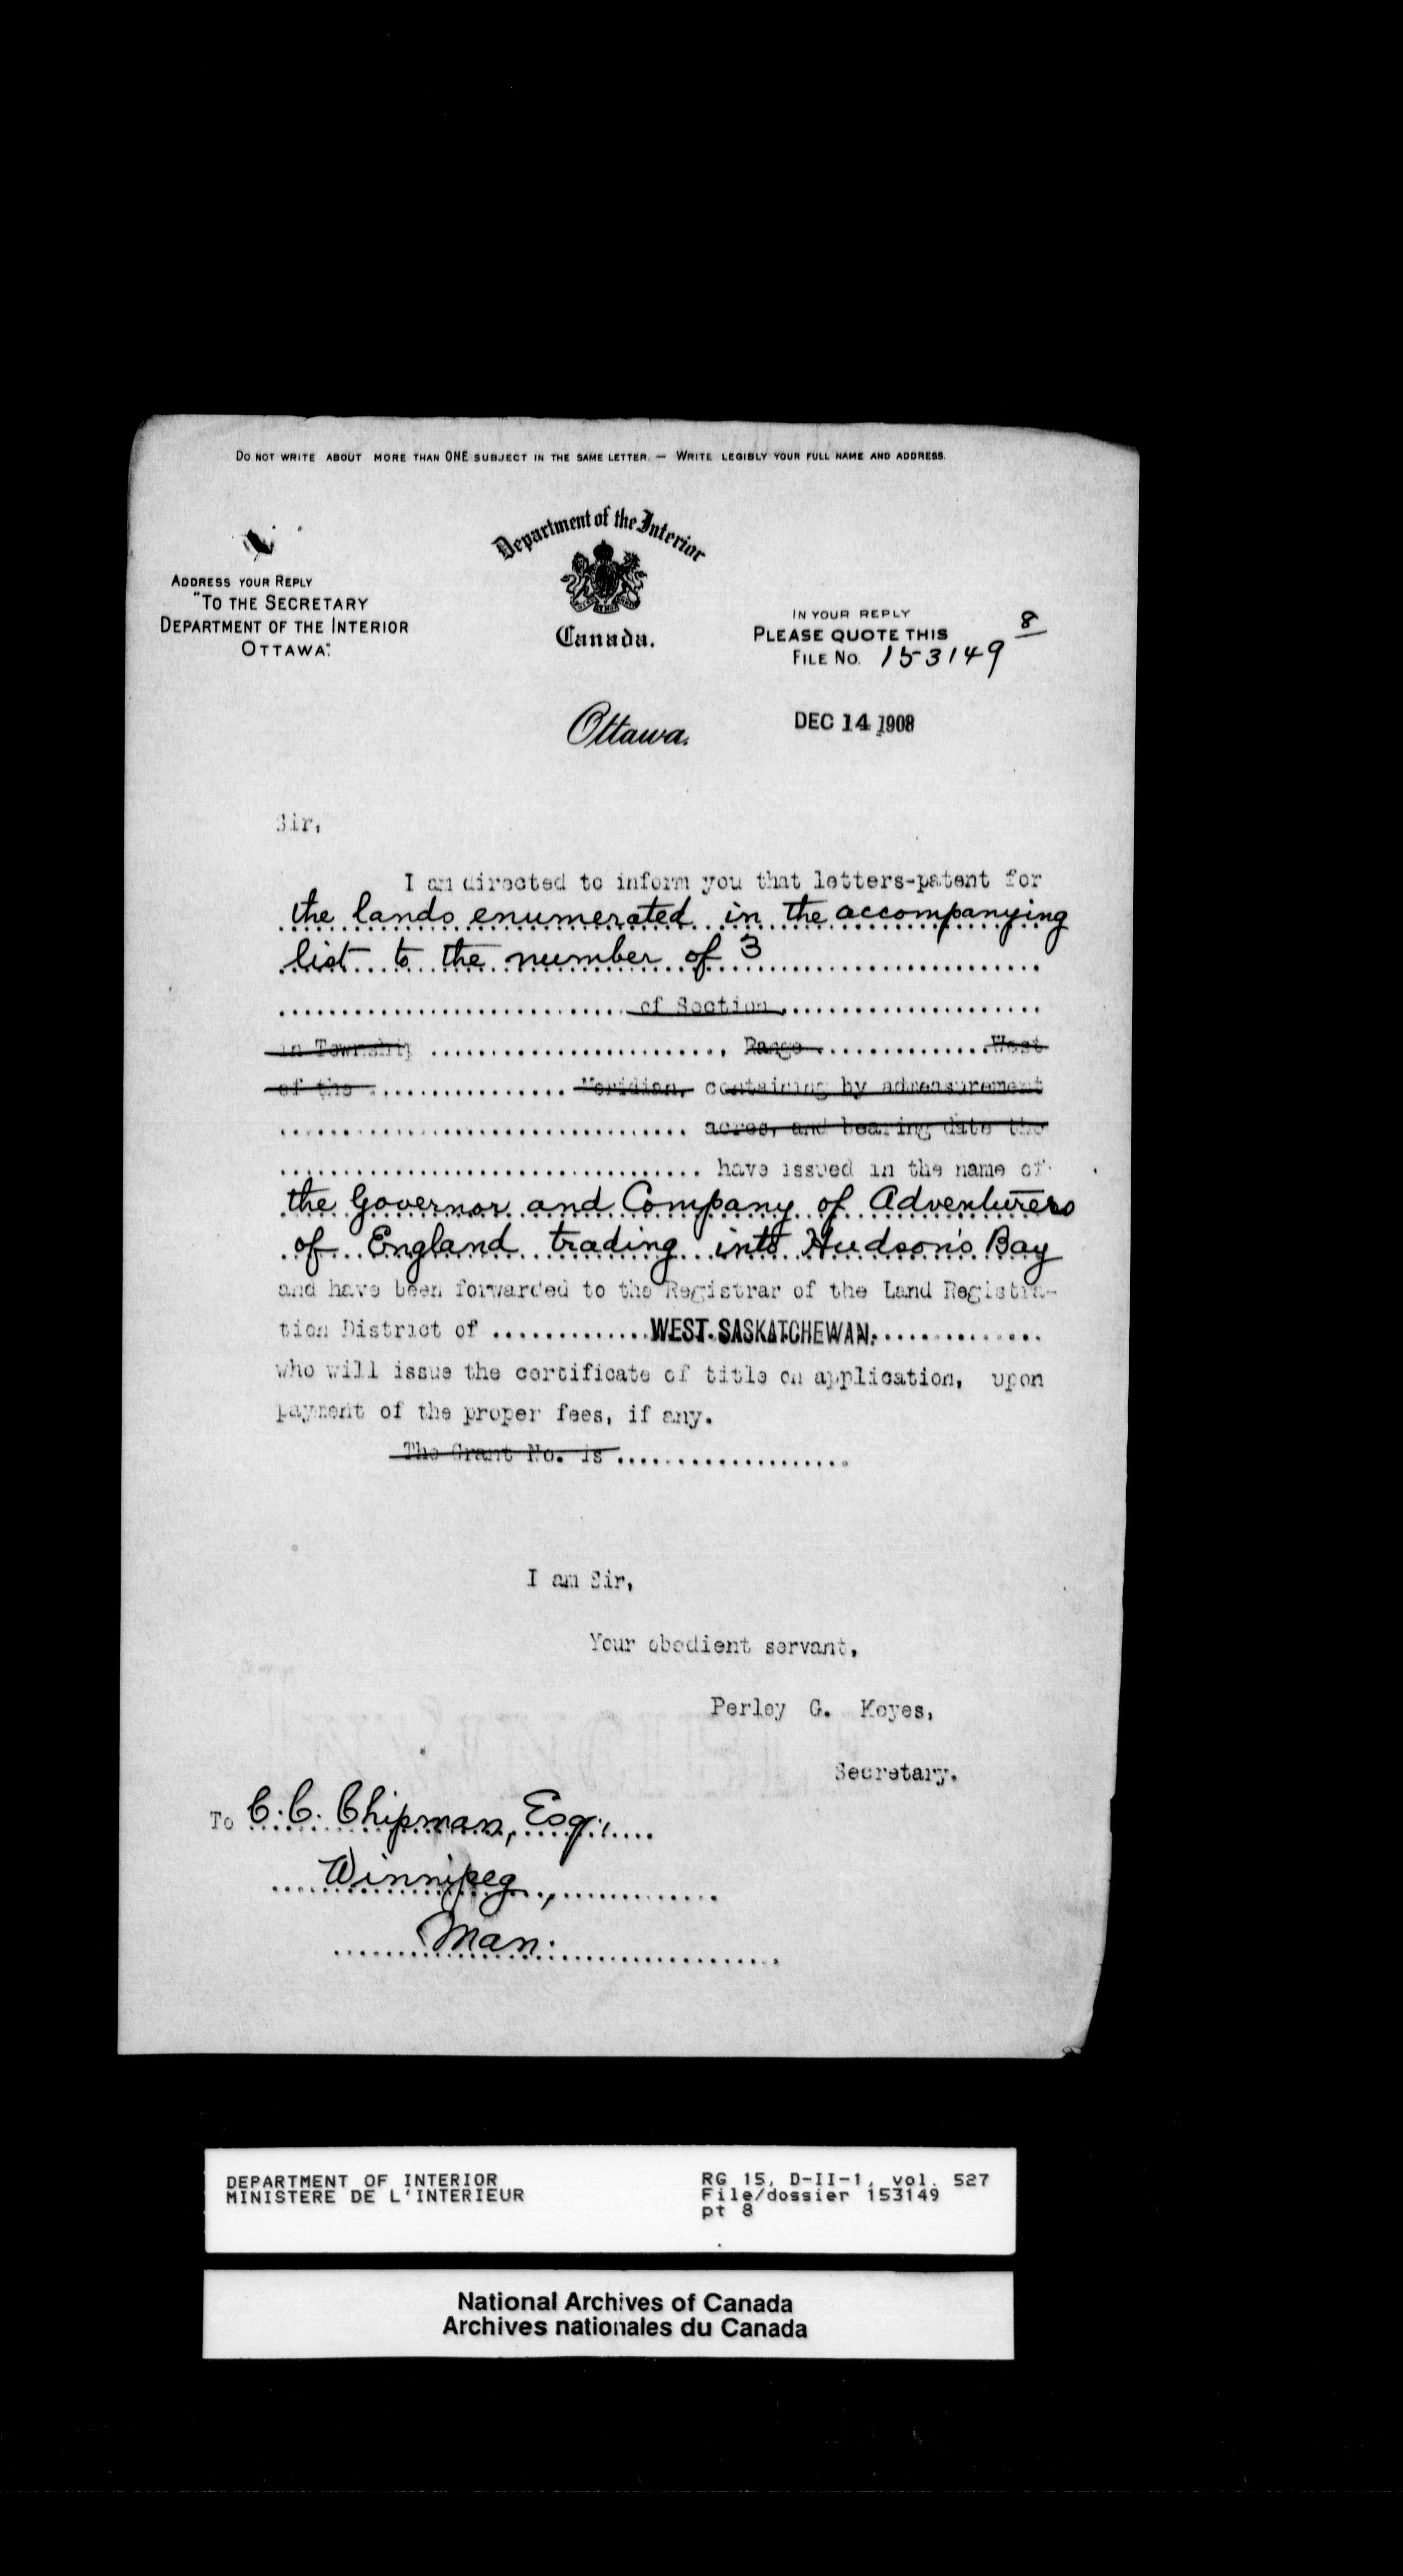 DO NOT WRITE ABOUT MORE THAN ONE SUBJECT IN THE SAME LETTER. — WRITE LEGIBLY YOUR FULL NAME AND ADDRESS.
Department of the Interior
Canada.
ADDRESS YOUR REPLY
"TO THE SECRETARY
DEPARTMENT OF THE INTERIOR
OTTAWA".
IN YOUR REPLY
PLEASE QUOTE THIS
FILE NO. 153149 8
Ottawa. DEC 14 1908
Sir,
I am directed to inform you that letters-patent for
the lands enumerated in the accompanying
list to the number of 3
of Section
in Township ..., Range ... West
of the ... Meridian, containing by admeasurement
... acres, and bearing date the
... have issued in the name of
the Governor and Company of Adventurers
of England trading into Hudson's Bay
and have been forwarded to the Registrar of the Land Registra-
tion District of ... WEST SASKATCHEWAN. ...
who will issue the certificate of title on application, upon
payment of the proper fees, if any.
The Grant No. is ...
I am Sir,
Your obedient servant,
Perley G. Keyes,
Secretary.
To C. C. Chipman, Esq.,
Winnipeg,
Man.
DEPARTMENT OF INTERIOR
MINISTERE DE L'INTERIEUR
RG 15, D-II-1, vol. 527
File/dossier 153149
pt 8
National Archives of Canada
Archives nationales du Canada